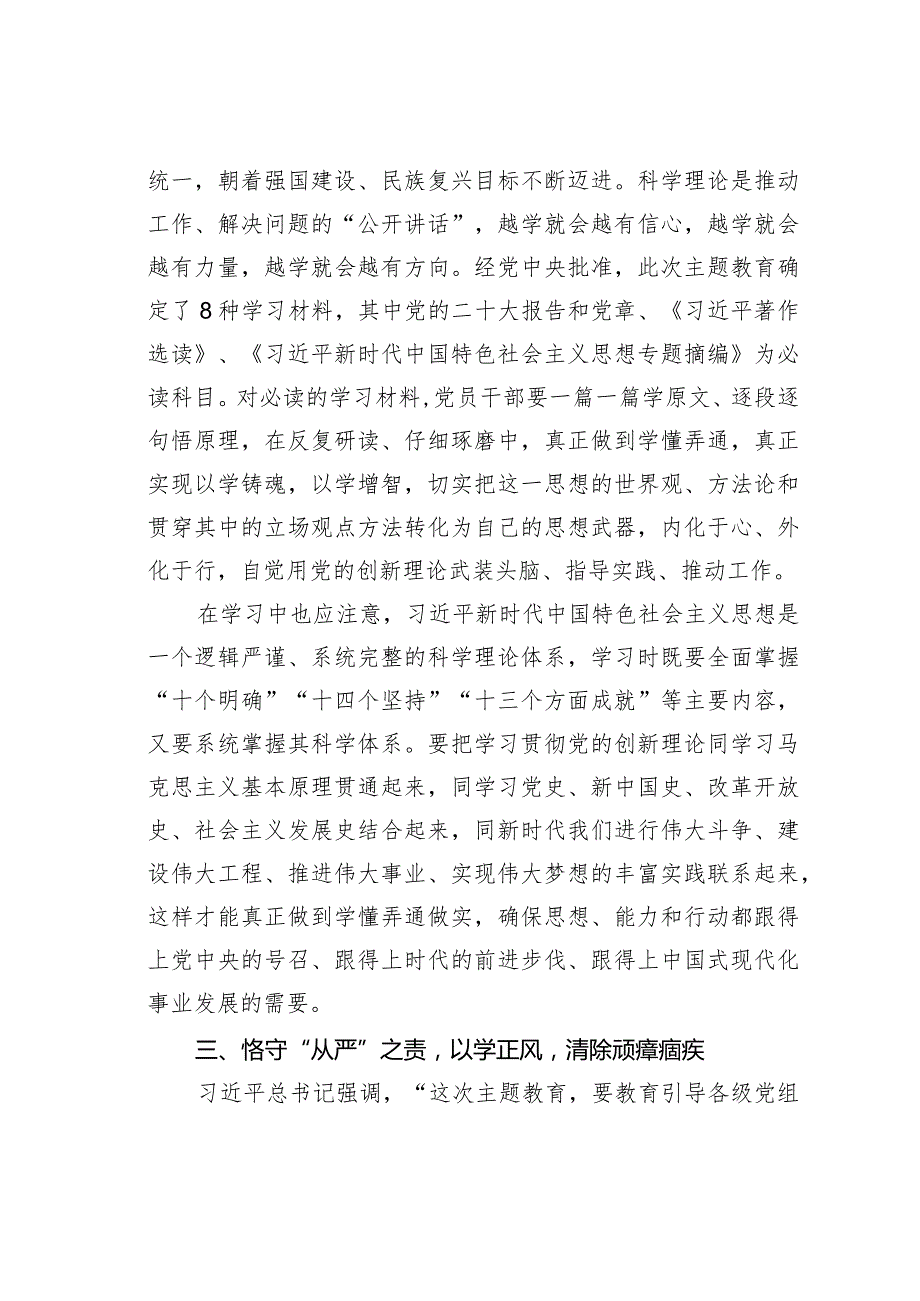 统一，朝着强国建设、民族复兴目标不断迈进。科学理论是推动
工作、解决问题的“公开讲话”，越学就会越有信心，越学就会
越有力量，越学就会越有方向。经党中央批准，此次主题教育确
定了 8 种学习材料，其中党的二十大报告和党章、《习近平著作
选读》、《习近平新时代中国特色社会主义思想专题摘编》为必
读科目。对必读的学习材料,党员干部要一篇一篇学原文、逐段逐
句悟原理，在反复研读、仔细琢磨中，真正做到学懂弄通，真正
实现以学铸魂，以学增智，切实把这一思想的世界观、方法论和
贯穿其中的立场观点方法转化为自己的思想武器，内化于心、外
化于行，自觉用党的创新理论武装头脑、指导实践、推动工作。
在学习中也应注意，习近平新时代中国特色社会主义思想是
一个逻辑严谨、系统完整的科学理论体系，学习时既要全面掌握
“十个明确”“十四个坚持”“十三个方面成就”等主要内容，
又要系统掌握其科学体系。要把学习贯彻党的创新理论同学习马
克思主义基本原理贯通起来，同学习党史、新中国史、改革开放
史、社会主义发展史结合起来，同新时代我们进行伟大斗争、建
设伟大工程、推进伟大事业、实现伟大梦想的丰富实践联系起来，
这样才能真正做到学懂弄通做实，确保思想、能力和行动都跟得
上党中央的号召、跟得上时代的前进步伐、跟得上中国式现代化
事业发展的需要。
三、恪守“从严”之责，以学正风，清除顽瘴痼疾
习近平总书记强调，“这次主题教育，要教育引导各级党组